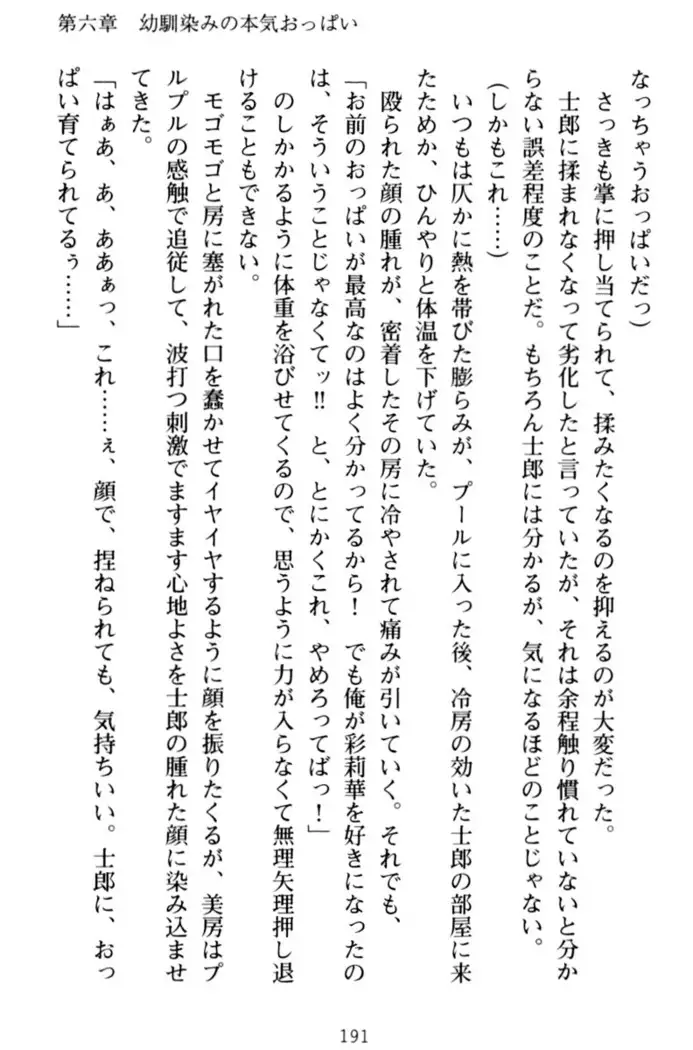 第六章　幼馴染みの本気おっぱい
なっちゃうおっぱいだっ)
さっきも掌に押し当てられて、揉みたくなるのを抑えるのが大変だった。
士郎に揉まれなくなって劣化したと言っていたが、それは余程触り慣れていないと分か
らない誤差程度のことだ。もちろん士郎には分かるが、気になるほどのことじゃない。
(しかもこれ……)
いつもは仄かに熱を帯びた膨らみが、プールに入った後、冷房の効いた士郎の部屋に来
たためか、ひんやりと体温を下げていた。
殴られた顔の腫れが、密着したその房に冷やされて痛みが引いていく。それでも、
「お前のおっぱいが最高なのはよく分かってるから！　でも俺が彩莉華を好きになったの
は、そういうことじゃなくてッ!!　と、とにかくこれ、やめろってばっ！」
のしかかるように体重を浴びせてくるので、思うように力が入らなくて無理矢理押し退
けることもできない。
モゴモゴと房に塞がれた口を蠢かせてイヤイヤするように顔を振りたくるが、美房はプ
ルプルの感触で追従して、波打つ刺激でますます心地よさを士郎の腫れた顔に染み込ませ
てきた。
「はぁあ、あ、ああぁっ、これ……ぇ、顔で、捏ねられても、気持ちいい。士郎に、おっ
ぱい育てられてるぅ……」
191